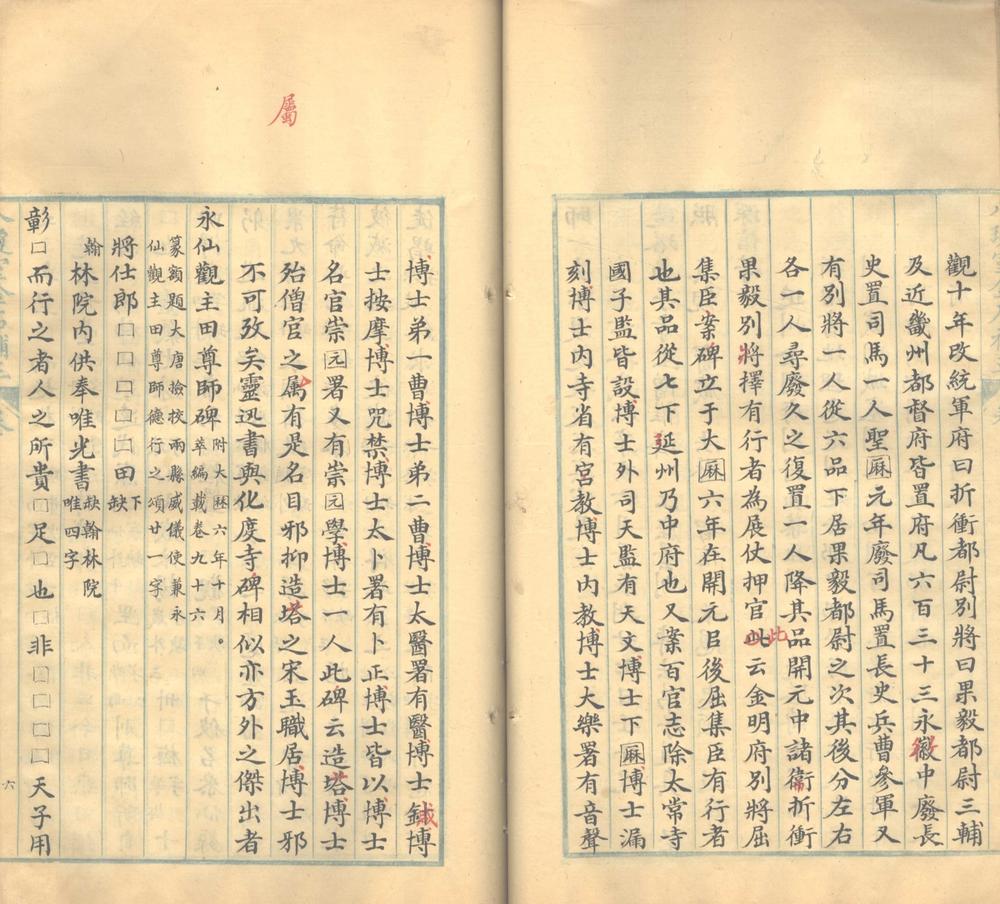 觀十年改統軍府曰折衝都尉別將曰果毅都尉三輔
及近畿州都督府皆置府凡六百三十三永徽中廢長
史置司馬一人聖厤元年廢司馬置長史兵曹參軍又
有別將一人從六品下居果毅都尉之次其後分左右
各一人尋廢久之復置一人降其品開元中諸衛折衝
果毅別將擇有行者為展仗押官此云金明府別將屈
集臣案碑立于大厤六年在開元后後屈集臣有行者
也其品從七下延州乃中府也又案百官志除太常寺
國子監皆設博士外司天監有天文博士下厤博士漏
刻博士內寺省有宮教博士內教博士大樂署有音聲
博士弟一曹博士弟二曹博士太醫署有醫博士鍼博
士按摩博士咒禁博士太卜署有卜正博士皆以博士
名官崇园署又有崇园學博士一人此碑云造塔博士
殆僧官之屬有是名目邪抑造塔之宋玉職居博士邪
不可攷矣靈迅書與化度寺碑相似亦方外之傑出者
永仙觀主田尊師碑
萃編載卷九十六
附大厯六年十月。
篆額題大唐撿挍兩縣威儀使兼永
仙觀主田尊師德行之頌廿一字
將仕郎□□□□□田
下
缺
翰林院內供奉唯光書
缺翰林院
唯四字
彰□而行之者人之所貴□足□也□非□□□□天子用
六
屬
此